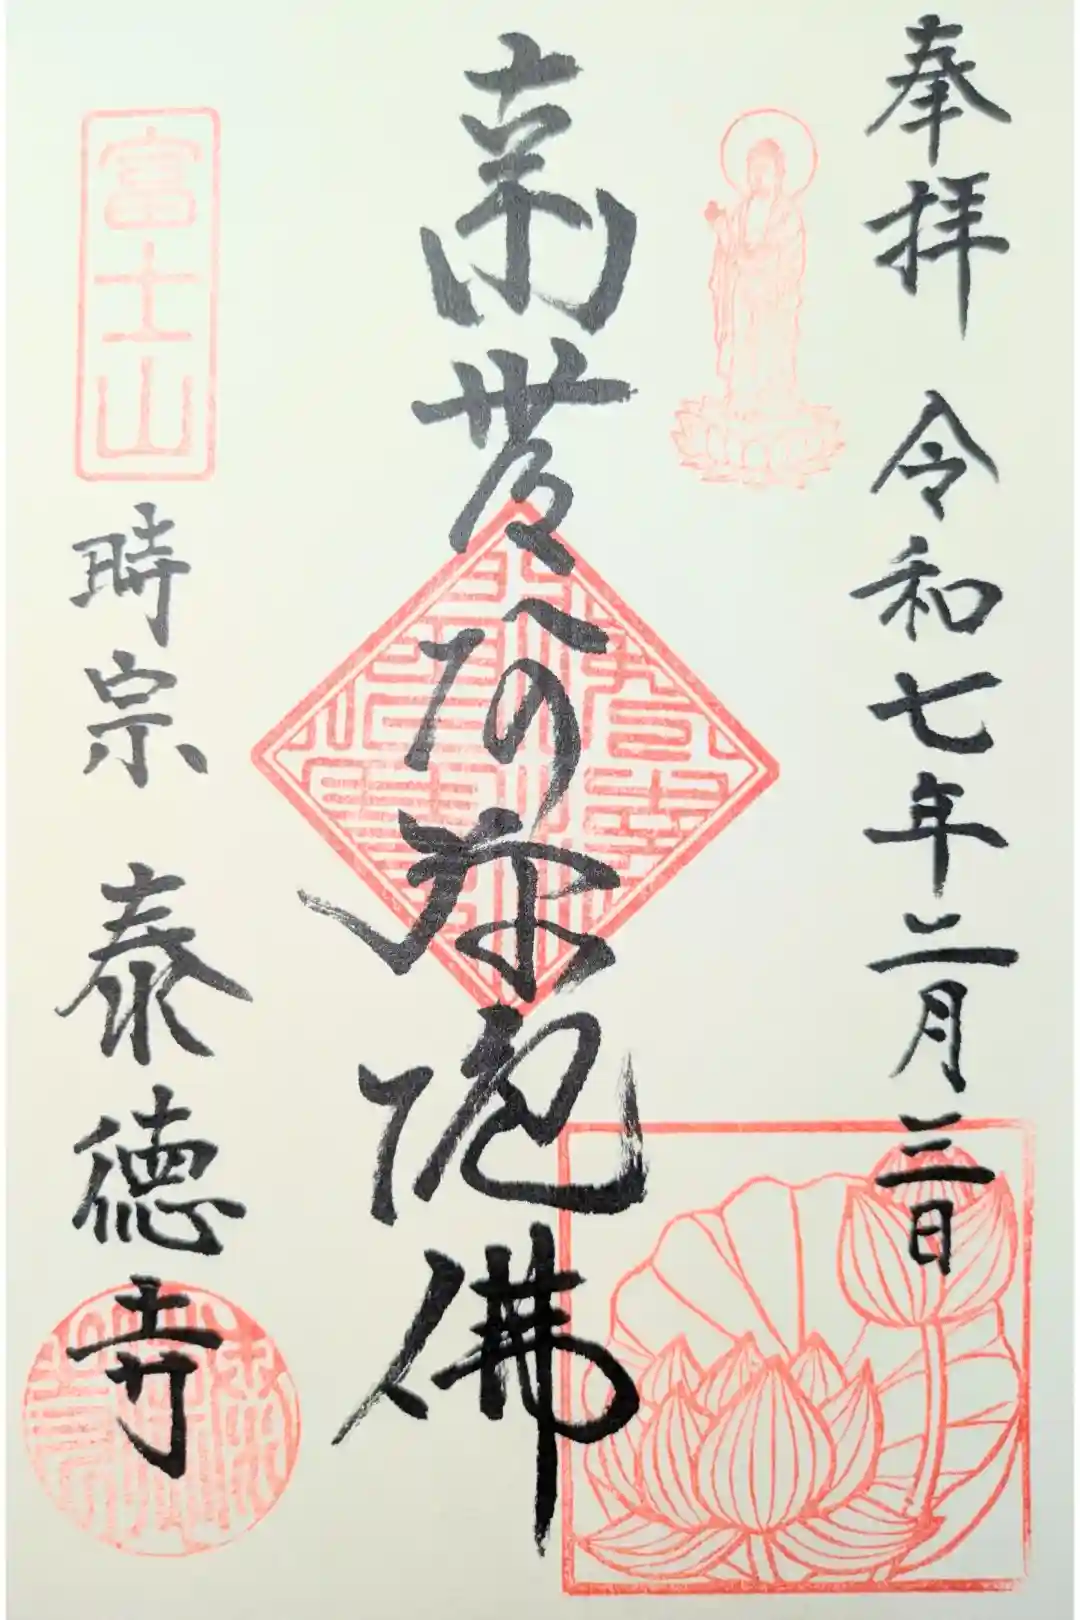 奉拝 令和七年二月三日
南無阿弥陀佛
富士山
時宗 泰徳寺